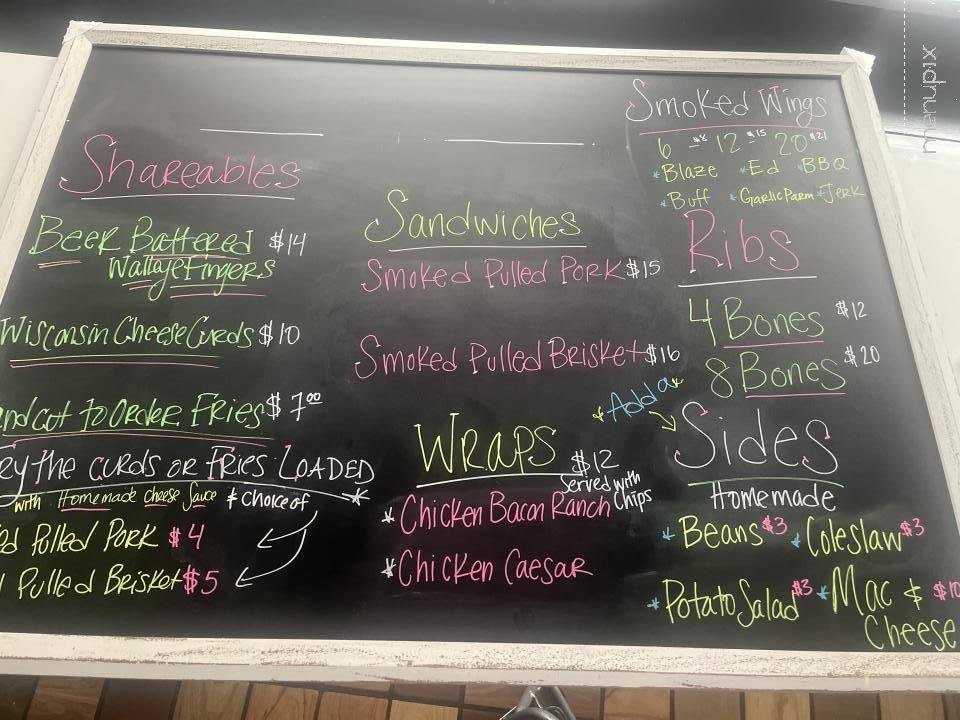 Shareables
Beer Battered $14
Wallaye Fingers
Wisconsin Cheese Curds $10
nd cut to order Fries $7.00
ry the curds or Fries Loaded
with Homemade cheese sauce & choice of
ed Pulled Pork $4
Pulled Brisket $5
Sandwiches
Smoked Pulled Pork $15
Smoked Pulled Brisket $16
Wraps $12
Served with
Chips
* Chicken Bacon Ranch
* Chicken Caesar
Smoked Wings
6 - $8 12 - $15 20 $21
* Blaze * Ed * BBQ
* Buff * Garlic Parm * Jerk
Ribs
4 Bones $12
8 Bones $20
* Add a *
Sides
Homemade
* Beans $3 * Coleslaw $3
* Potato Salad $3 * Mac & $10
Cheese
menupix